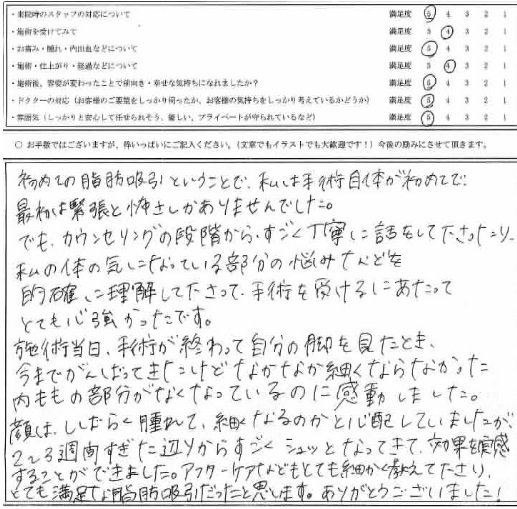 ・来院時のスタッフの対応について 満足度 5 4 3 2 1
・施術を受けてみて 満足度 5 4 3 2 1
・お痛み・腫れ・内出血などについて 満足度 5 4 3 2 1
・施術・仕上がり・経過などについて 満足度 5 4 3 2 1
・施術後、容姿が変わったことで前向き・幸せな気持ちになれましたか？ 満足度 5 4 3 2 1
・ドクターの対応（お客様のご要望をしっかり伺ったか、お客様の気持ちをしっかり考えているかどうか） 満足度 5 4 3 2 1
・雰囲気（しっかりと安心して任せられそう、優しい、プライベートが守られているなど） 満足度 5 4 3 2 1
○ お手数ではございますが、枠いっぱいにご記入ください。（文章でもイラストでも大歓迎です！）今後の励みにさせて頂きます。
初めての脂肪吸引ということで、私は手術自体が初めてで
最初は緊張と怖さしかありませんでした。
でも、カウンセリングの段階から、すごく丁寧に話をして下さったり、
私の体の気になっている部分の悩みなどを
的確に理解して下さって、手術を受けるにあたって
とても心強かったです。
施術当日、手術が終わって自分の脚を見たとき、
今までがんばってきたけどなかなか細くならなかった
内ももの部分がなくなっているのに感動しました。
顔は、しばらく腫れて、細くなるのかと心配していましたが、
2〜3週間すぎた辺りからすごくシュッとなってきて、効果を実感
することができました。アフターケアなどもとても細かく教えて下さり、
とても満足な脂肪吸引だったと思います。ありがとうございました！